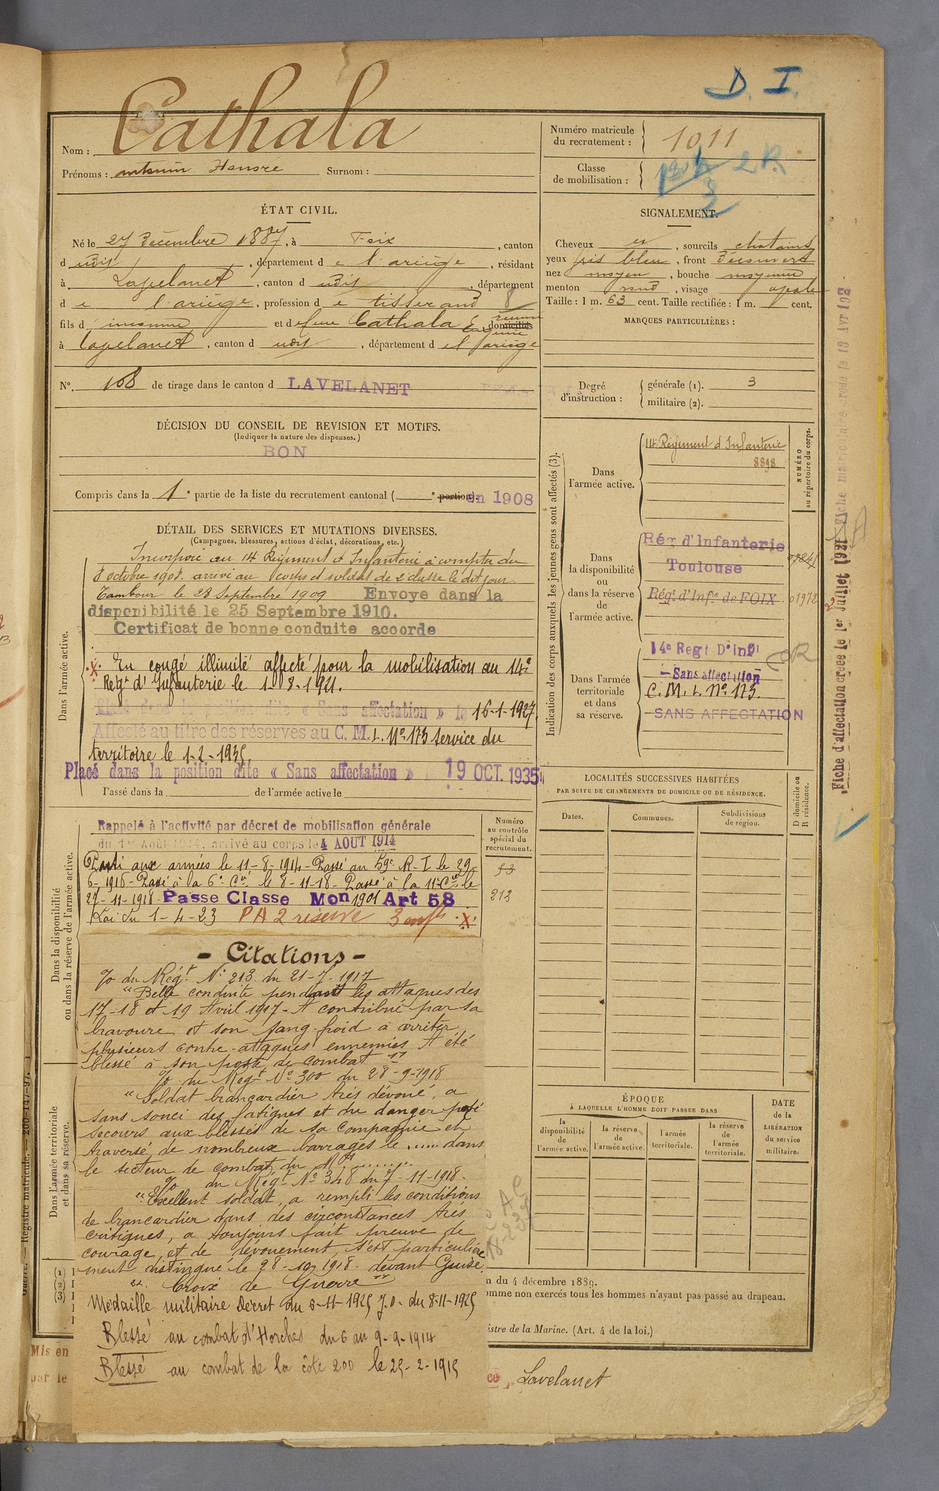 D. I.
Nom : Cathala
Prénoms : Surnom :
Numéro matricule du recrutement : 1011
Classe de mobilisation : 2 R.
ÉTAT CIVIL.
Né le 27 Décembre 1887, à Foix, canton
d udit, département d e l'ariège, résidant
à Lavelanet, canton d udit, département
d e l'ariège, profession d e tisserand
fils d inconnu et d efune Cathala domiciliés
à Lavelanet, canton d udit, département d e l'ariège
N° 108 de tirage dans le canton d LAVELANET
SIGNALEMENT.
Cheveux et, sourcils chatains
yeux gris bleu, front Découvert
nez moyen, bouche moyenne
menton rond, visage ovale
Taille : 1 m. 63 cent. Taille rectifiée : 1 m. cent.
MARQUES PARTICULIÈRES :
Degré d'instruction : générale (1). 3
militaire (2).
DÉCISION DU CONSEIL DE REVISION ET MOTIFS.
(Indiquer la nature des dispenses.)
BON
Compris dans la 1e partie de la liste du recrutement cantonal ( e portion). en 1908
DÉTAIL DES SERVICES ET MUTATIONS DIVERSES.
(Campagnes, blessures, actions d'éclat, décorations, etc.)
Dans l'armée active.
Incorporé au 14e Régiment d'Infanterie à compter du
8 octobre 1908. arrivé au Corps et soldat de 2e classe le dit jour.
Tambour le 28 Septembre 1909 Envoyé dans la
disponibilité le 25 Septembre 1910.
Certificat de bonne conduite accordé
En congé illimité affecté pour la mobilisation au 14e
Régt d'Infanterie le 1-8-1911.
Placé dans la position dite « Sans affectation » le 16-1-1927.
Affecté au titre des réserves au C. M. L. N° 173 service du
territoire le 1-2-1935
Placé dans la position dite « Sans affectation » 19 OCT. 1935
Passé dans la de l'armée active le
Indication des corps auxquels les jeunes gens sont affectés (3).
NUMÉRO au répertoire du corps.
Dans l'armée active.
14e Régiment d'Infanterie
8898
Dans la disponibilité ou dans la réserve de l'armée active.
Rég. d'Infanterie
Toulouse
Régt d'Infie de FOIX
Dans l'armée territoriale et dans sa réserve.
14e Regt D'Inf
Sans affectation
C. M. L. N° 173.
SANS AFFECTATION
Fiche d'affectation créée le 1er Juillet 1921
Dans la disponibilité ou dans la réserve de l'armée active.
Rappelé à l'activité par décret de mobilisation générale
du 1er Août 1914, arrivé au corps le 4 AOUT 1914
Parti aux armées le 11-8-1914- Passé au 59e R.I. le 29-
6-1916- Passé à la 6e Cie le 8-11-18- Passé à la 11e Cie le
27-11-1918. Passe Classe Mon 1901 Art 58
Loi du 1-4-23 PA 2 réserve 3 enfts
Numéro au contrôle spécial du recrutement.
212
- Citations -
O/ du Régt N° 213 du 21-7-1917
"Belle conduite pendant les attaques des
17-18 et 19 Avril 1917- A contribué par sa
bravoure et son sang-froid à arrêter
plusieurs contre-attaques ennemies. A été
blessé à son poste de combat"
O/ du Régt N° 300 du 28-9-1918
"Soldat brancardier très dévoué, a
sans souci des fatigues et du danger porté
secours aux blessés de sa Compagnie et
traversé de nombreux barrages le ..... dans
le secteur de combat du Mt .......
O/ du Régt N° 348 du 7-11-1918.
"Excellent soldat, a rempli les conditions
de brancardier dans des circonstances très
critiques, a toujours fait preuve de
courage et de dévouement, s'est particulière
ment distingué le 28-10-1918. devant Guise.
" Croix de Guerre "
Médaille militaire Décret du 6-11-1925 J.O. du 8-11-1925
Blessé au combat d'Horches du 6 au 9-9-1914
Blessé au combat de la côte 200 le 25-2-1915
Dans l'armée territoriale et dans sa réserve.
LOCALITÉS SUCCESSIVES HABITÉES
PAR SUITE DE CHANGEMENTS DE DOMICILE OU DE RÉSIDENCE.
Dates. Communes. Subdivisions de région. D domicile ou R résidence.
ÉPOQUE
À LAQUELLE L'HOMME DOIT PASSER DANS
la disponibilité de l'armée active. la réserve de l'armée active. l'armée territoriale. la réserve de l'armée territoriale.
DATE de la LIBÉRATION du service militaire.
(1)
(2)
(3)
n du 4 décembre 1889.
omme non exercés tous les hommes n'ayant pas passé au drapeau.
istre de la Marine. (Art. 4 de la loi.)
Mis en
par le
Lavelanet